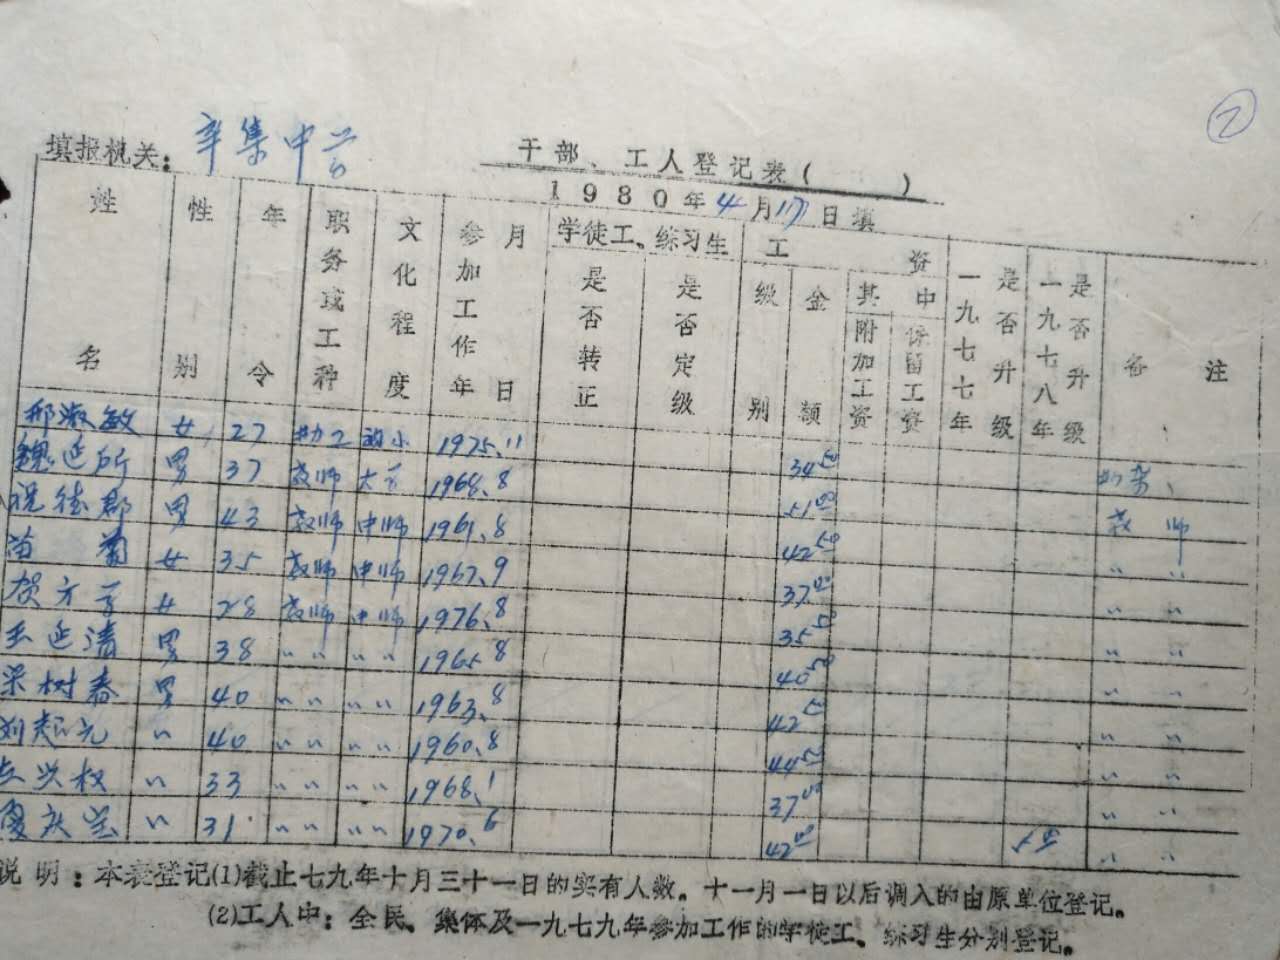 ②
填报机关：辛集中学
干部、工人登记表（　　）
1980年4月17日填
姓名 性别 年令 职务或工种 文化程度 参加工作年月日 学徒工、练习生 是否转正 是否定级 工资 级别 金额 其中 附加工资 保留工资 一九七七年是否升级 一九七八年是否升级 备注
郝淑敏 女 27 幼工 初小 1975.11 34.50
魏延所 男 37 教师 大学 1968.8 51.00
祝德郡 男 43 教师 中师 1961.8 42.50 教师
苗菊 女 35 教师 中师 1967.9 37.00 〃 〃
贺方 女 28 教师 中师 1976.8 35.50 〃 〃
王延清 男 38 〃 〃 〃 〃 1965.8 40.50 〃 〃
梁树春 男 40 〃 〃 〃 〃 1963.8 42.50 〃 〃
刘超元 〃 40 〃 〃 〃 〃 1960.8 44.50 〃 〃
兴权 〃 33 〃 〃 1968.1 37.00 〃 〃
庆 〃 31 〃 〃 〃 〃 1970.6 42.00 〃 〃
说明：本表登记(1)截止七九年十月三十一日的实有人数。十一月一日以后调入的由原单位登记。
(2)工人中：全民、集体及一九七九年参加工作的学徒工、练习生分别登记。